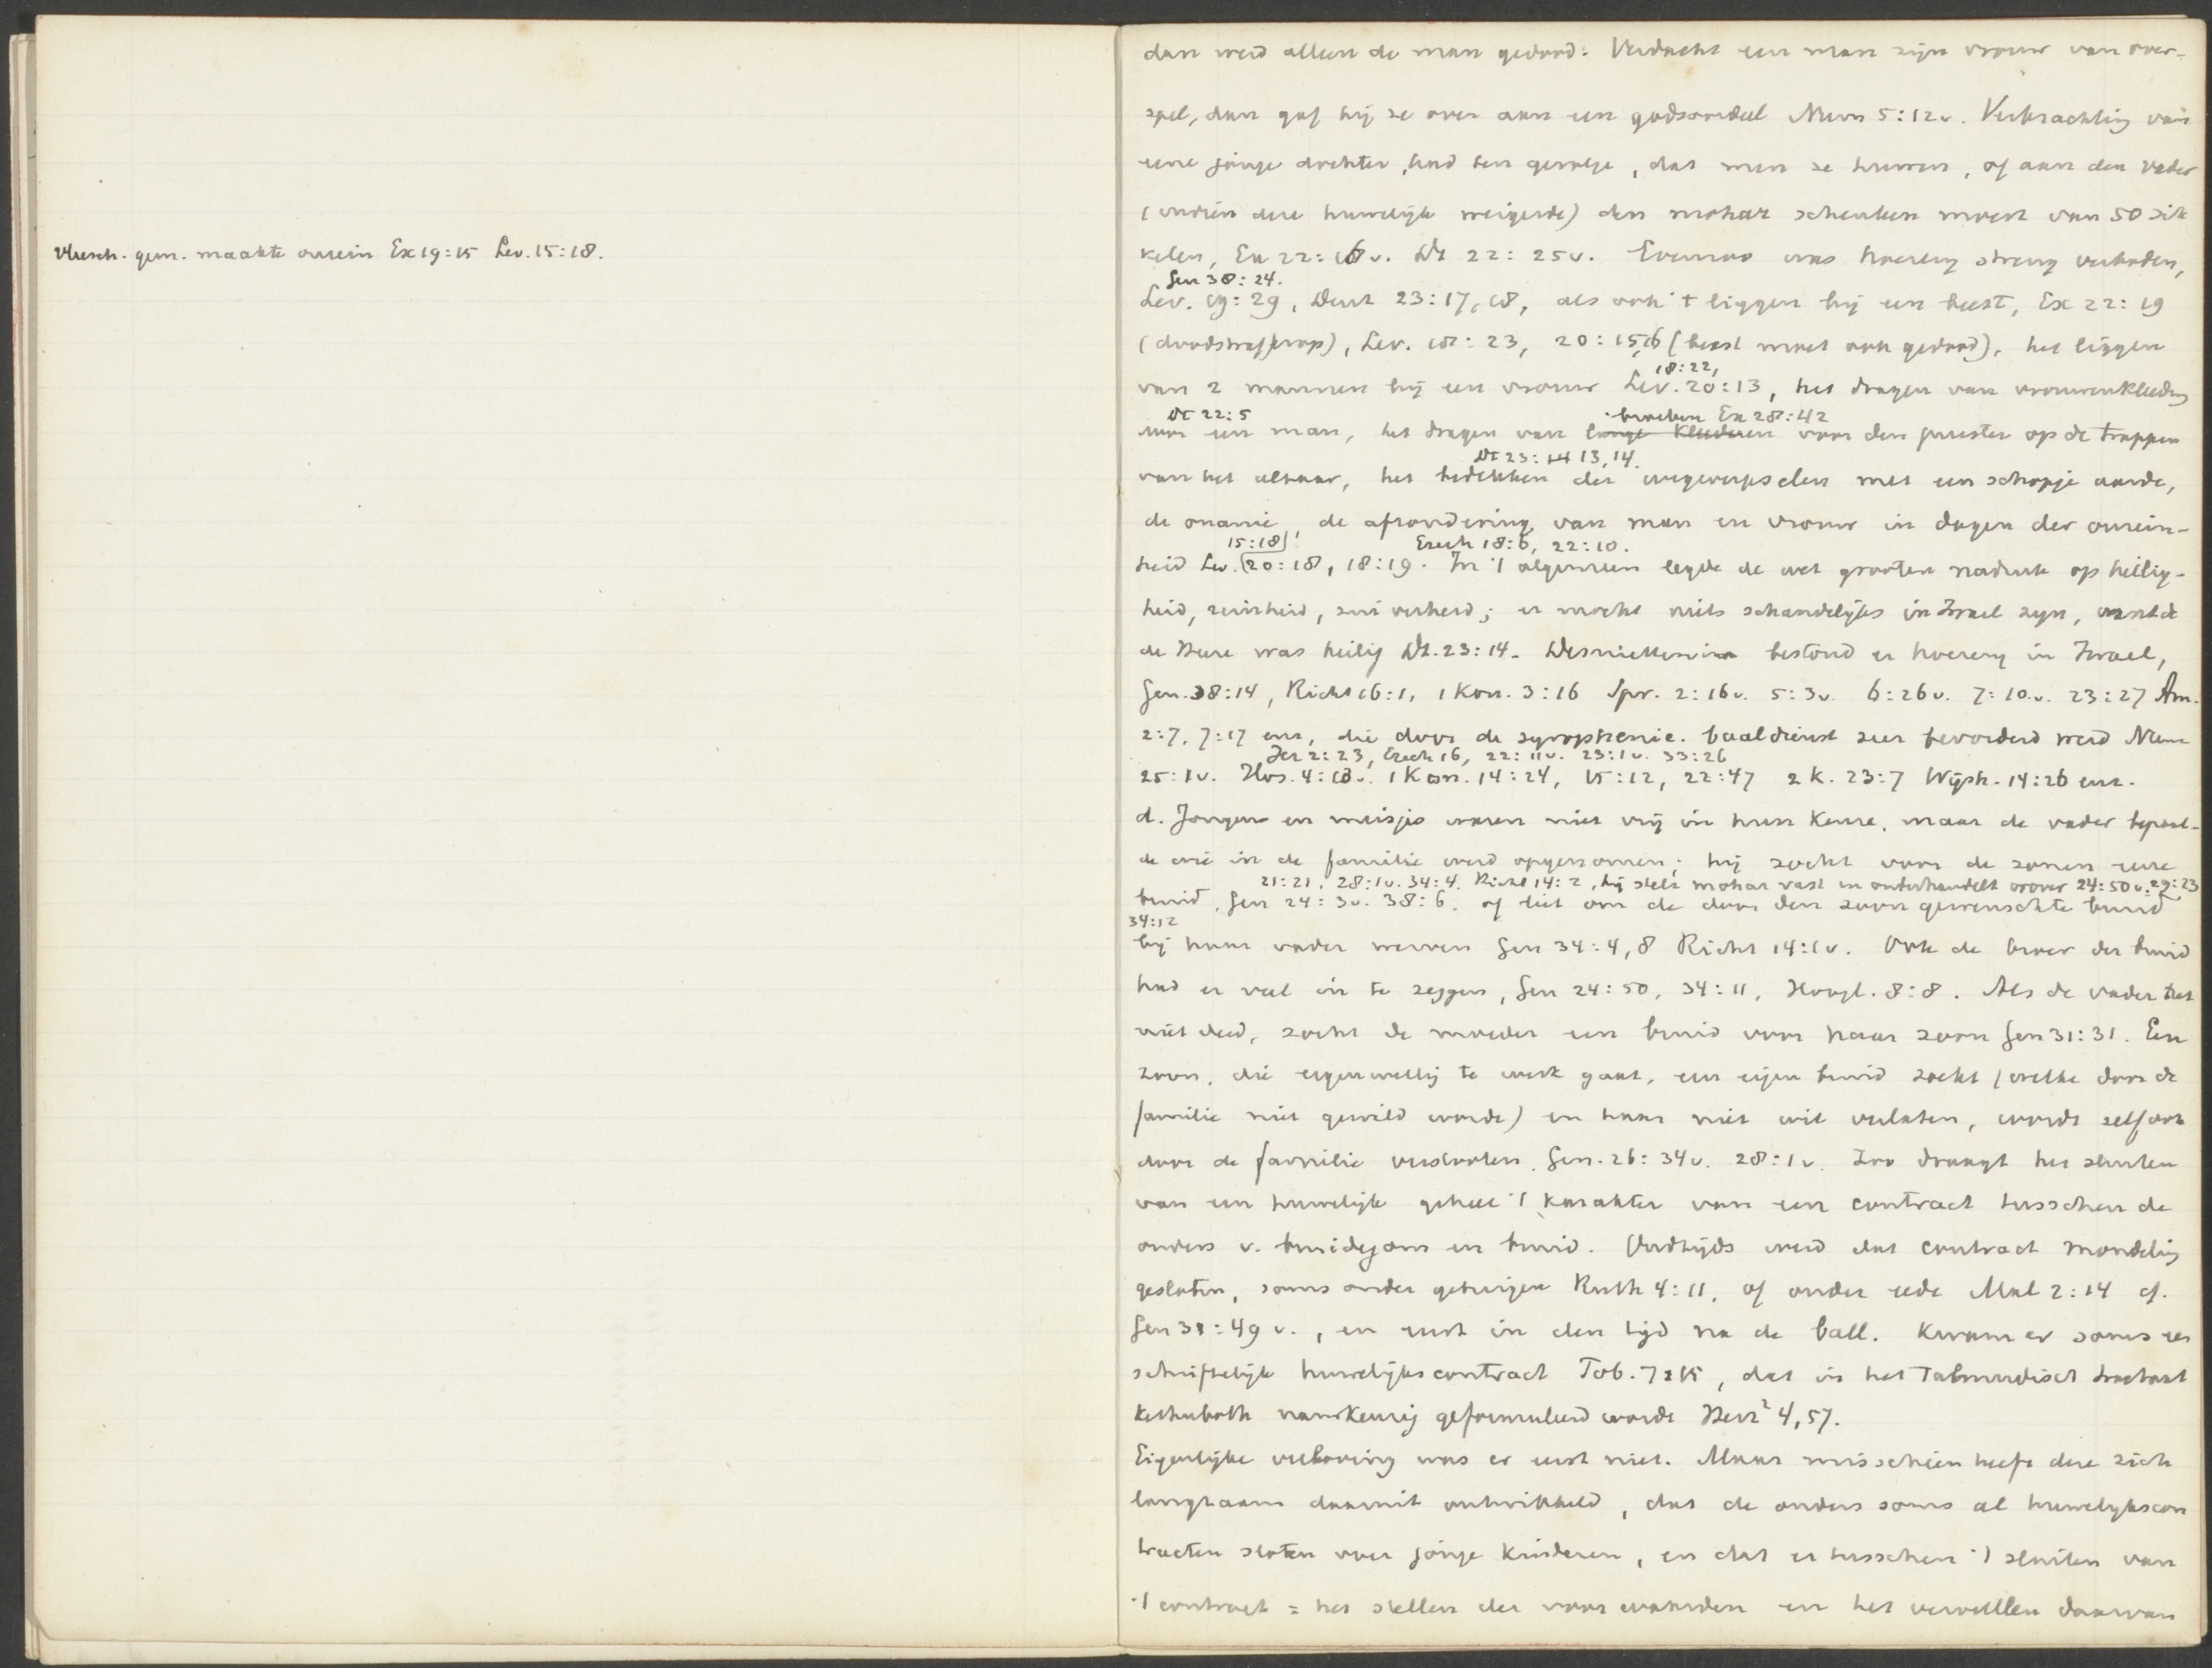 Vleesch. gem. maakte onrein Ex 19:15 Lev. 15:18.
dan werd alleen de man gedood. Verdacht een man zijn vrouw van over-
spel, dan gaf hij ze over aan een godsoordeel Num 5:12v. Verkrachting van
eene jonge dochter, had ten gevolge, dat men ze huwen, of aan den vader
(indien deze huwelijk weigerde) den mohar schenken moest van 50 sik
kelen, Ex 22:16v. Dt 22:25v. Evenzoo was hoererij streng verboden,
Gen 38:24.
Lev. 19:29, Deut 23:17,18, als ook 't liggen bij een beest, Ex 22:19
(doodstraf erop), Lev. 18:23, 20:15,16 (beest moet ook gedood), het liggen
18:22,
van 2 mannen bij een vrouw Lev. 20:13, het dragen van vrouwenkleeding
Dt 22:5 broeken Ex 28:42
voor een man, het dragen van lange kleederen voor den priester op de trappen
Dt 23:14 13,14.
van het altaar, het bedekken der uitgeworpselen met een schopje aarde,
de onanie, de afzondering van man en vrouw in dagen der onrein-
15:18 Ezech 18:6, 22:10.
heid Lev. 20:18, 18:19. In 't algemeen legde de wet grooten nadruk op heilig-
heid, reinheid, zuiverheid; er mocht niets schandelijks in Israel zijn, want
de Heere was heilig Dt. 23:14. Desniettemin bestond er hoererij in Israel,
Gen. 38:14, Richt 16:1, 1 Kon. 3:16 Spr. 2:16v. 5:3v. 6:26v. 7:10v. 23:27 Am.
2:7, 7:17 enz, die door de syrophenic. baaldienst zeer bevorderd werd Num
Jer 2:23, Ezech 16, 22:11v. 23:1v. 33:26
25:1v. Hos. 4:13v. 1 Kon. 14:24, 15:12, 22:47 2 K. 23:7 Wijsh. 14:26 enz.
d. Jongens en meisjes waren niet vrij in hun keuze, maar de vader bepaal-
de wie in de familie werd opgenomen; hij zocht voor de zonen eene
21:21, 28:1v. 34:4. Richt 14:2, hij stelt mohar vast en onderhandelt erover 24:50v. 29:23
bruid, Gen 24:3v. 38:6. of liet om de door den zoon gewenschte bruid
34:12
bij haar vader werven Gen 34:4,8 Richt 14:1v. Ook de broer der bruid
had er veel in te zeggen, Gen 24:50, 34:11, Hoogl. 8:8. Als de vader het
niet deed, zocht de moeder een bruid voor haar zoon Gen 31:31. Een
zoon, die eigenwillig te werk gaat, een eigen bruid zoekt (welke door de
familie niet gewild wordt) en haar niet wil verlaten, wordt zelf ook
door de familie verstooten. Gen. 26:34v. 28:1v. Zoo draagt het sluiten
van een huwelijk geheel 't karakter van een contract tusschen de
ouders v. bruidegom en bruid. Oudtijds werd dat contract mondeling
gesloten, soms onder getuigen Ruth 4:11, of onder eede Mal 2:14 cf.
Gen 31:49v., en eerst in den tijd na de ball. kwam er soms een
schriftelijk huwelijkscontract Tob. 7:15, dat in het Talmudisch tractaat
Kethuboth nauwkeurig geformuleerd wordt Herz² 4,57.
Eigenlijke verloving was er eerst niet. Maar misschien heeft deze zich
langzaam daaruit ontwikkeld, dat de ouders soms al huwelijkscon
tracten sloten voor jonge kinderen, en dat er tusschen 't sluiten van
't contract = het stellen der voorwaarden en het vervullen daarvan